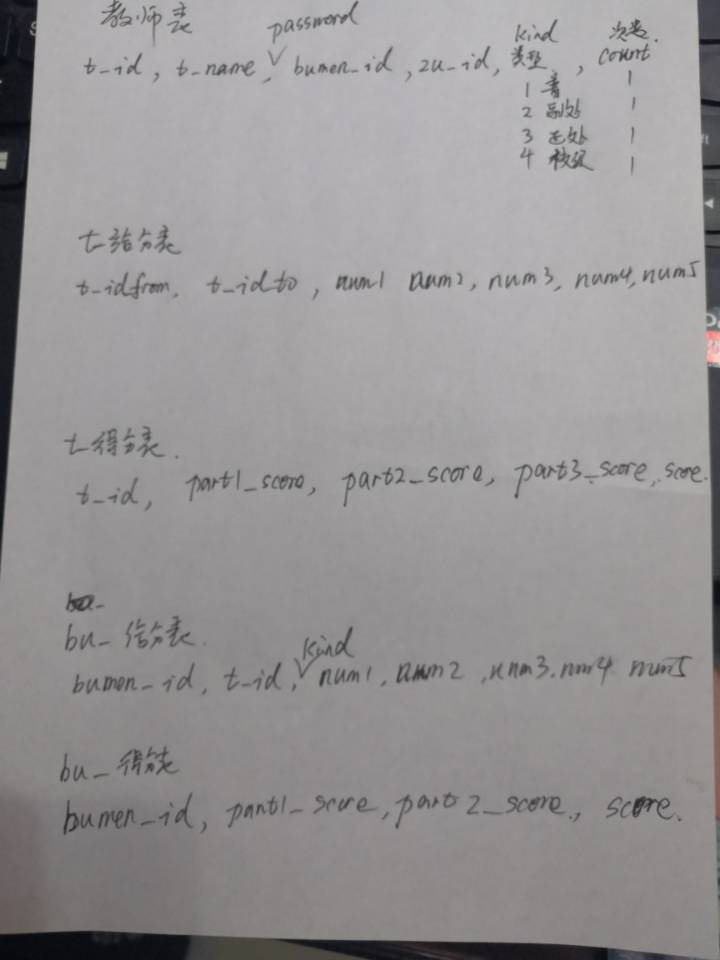 教师表
password
kind 次数.
t_id, t_name, bumen_id, zu_id, 类型, count
1 普 1
2 副处 1
3 正处 1
4 校级 1
t_给分表
t_idfrom, t_idto, num1 num2, num3, num4, num5
t_得分表.
t_id, part1_score, part2_score, part3_score, score.
bu_
bu_给分表.
kind
bumen_id, t_id, num1, num2, num3. num4 num5
bu_得分表
bumen_id, part1_score, part2_score, score.